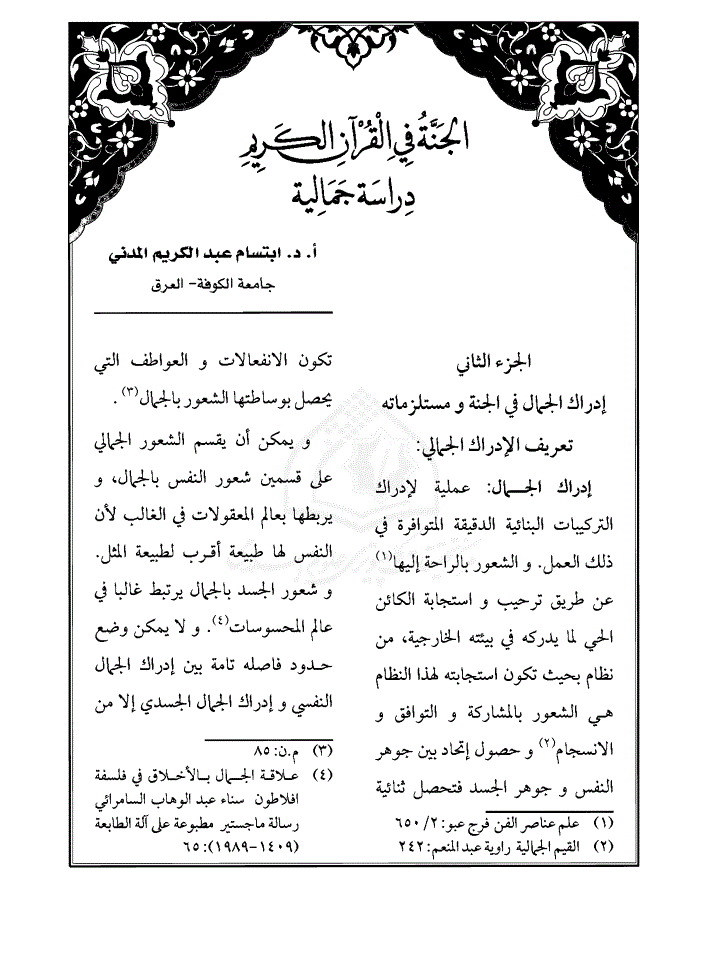 الجَنَّةُ فِي الْقُرْآنِ الكَرِيمِ
دِرَاسَة جَمَالِية
أ. د. ابتسام عبد الكريم المدني
جامعة الكوفة- العرق
الجزء الثاني
إدراك الجمال في الجنة و مستلزماته
تعريف الإدراك الجمالي:
إدراك الجـــمال: عملية لإدراك
التركيبات البنائية الدقيقة المتوافرة في
ذلك العمل. و الشعور بالراحة إليها(١)
عن طريق ترحيب و استجابة الكائن
الحي لما يدركه في بيئته الخارجية، من
نظام بحيث تكون استجابته لهذا النظام
هـي الشعور بالمشاركة و التوافق و
الانسجام(٢) و حصول إتحاد بين جوهر
النفس و جوهر الجسد فتحصل ثنائية
(١) علم عناصر الفن فرج عبو: ٢/ ٦٥٠
(٢) القيم الجمالية راوية عبد المنعم: ٢٤٢
تكون الانفعالات و العواطف التي
يحصل بوساطتها الشعور بالجمال(٣).
و يمكن أن يقسم الشعور الجمالي
على قسمين شعور النفس بالجمال، و
يربطها بعالم المعقولات في الغالب لأن
النفس لها طبيعة أقـرب لطبيعة المثل.
و شعور الجسد بالجمال يرتبط غالبا في
عالم المحسوسات(٤). و لا يمكن وضع
حـدود فاصله تامة بين إدراك الجمال
النفسي و إدراك الجمال الجسدي إلا من
(٣) م.ن: ٨٥
(٤) عـلاقـة الجـمال بـالأخـلاق في فلسفة
افلاطون سناء عبد الوهاب السامرائي
رسالة ماجستير مطبوعة على آلة الطابعة
(١٤٠٩-١٩٨٩): ٦٥